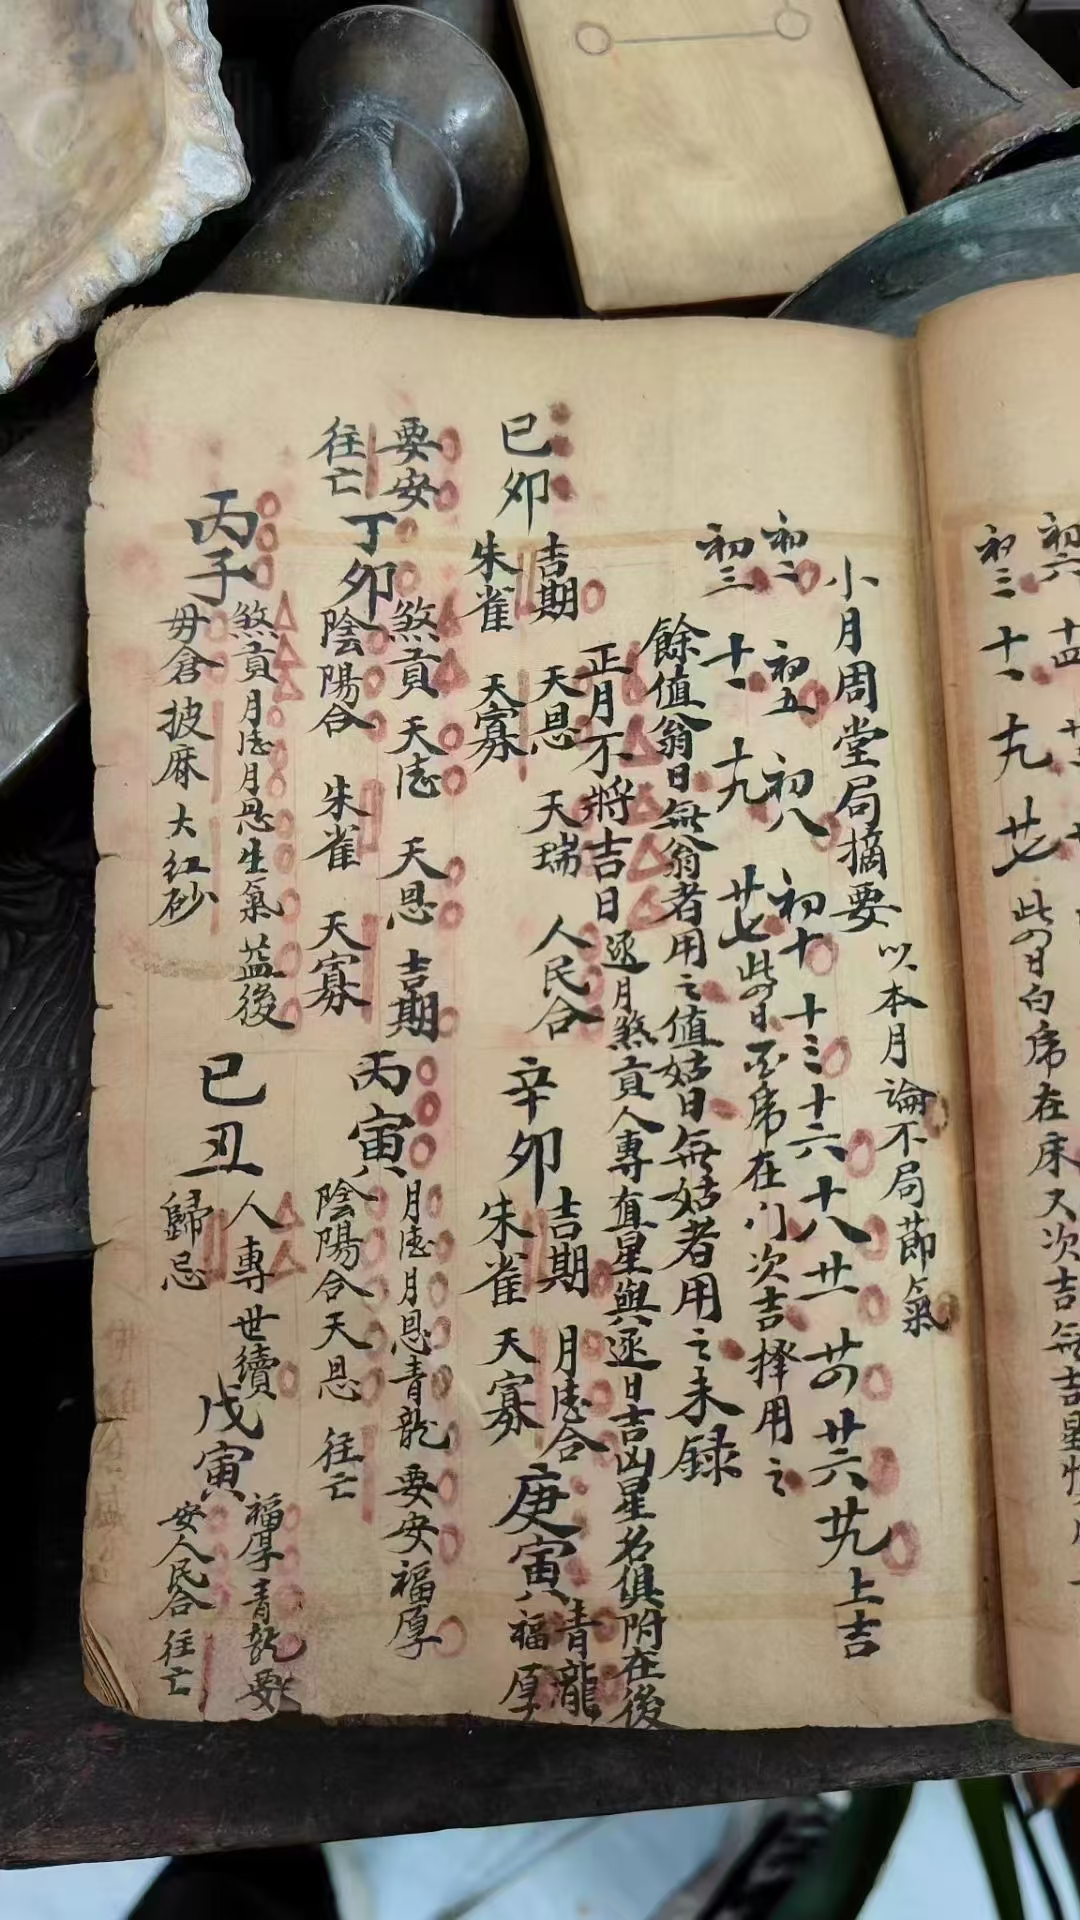 初六 十四 廿二
初三 十一 十九 廿七 此四日白虎在床又次吉無吉星
小月周堂局摘要 以本月論不局節氣
初二 初五 初八 初十 十三 十六 十八 廿一 廿四 廿六 廿九 上吉
初三 十一 十九 廿七 此四日白虎在門次吉擇用之
餘值翁日無翁者用之值姑日無姑者用之未録
正月不將吉日 逐月煞貢人專直星與逐日吉凶星名俱附在後
己卯 吉期 天恩 天瑞 人民合
朱雀 天寡
辛卯 吉期 月徳合
朱雀 天寡
庚寅 青龍
福厚
要安
往亡
丁卯 煞貢 天徳 天恩 吉期
陰陽合 朱雀 天寡
丙寅 月徳月恩青龍 要安 福厚
陰陽合天恩 往亡
丙子 煞貢月徳月恩生氣益後
毋倉披麻大紅砂
己丑 人專世續
歸忌
戊寅 福厚青龍要
安人民合往亡